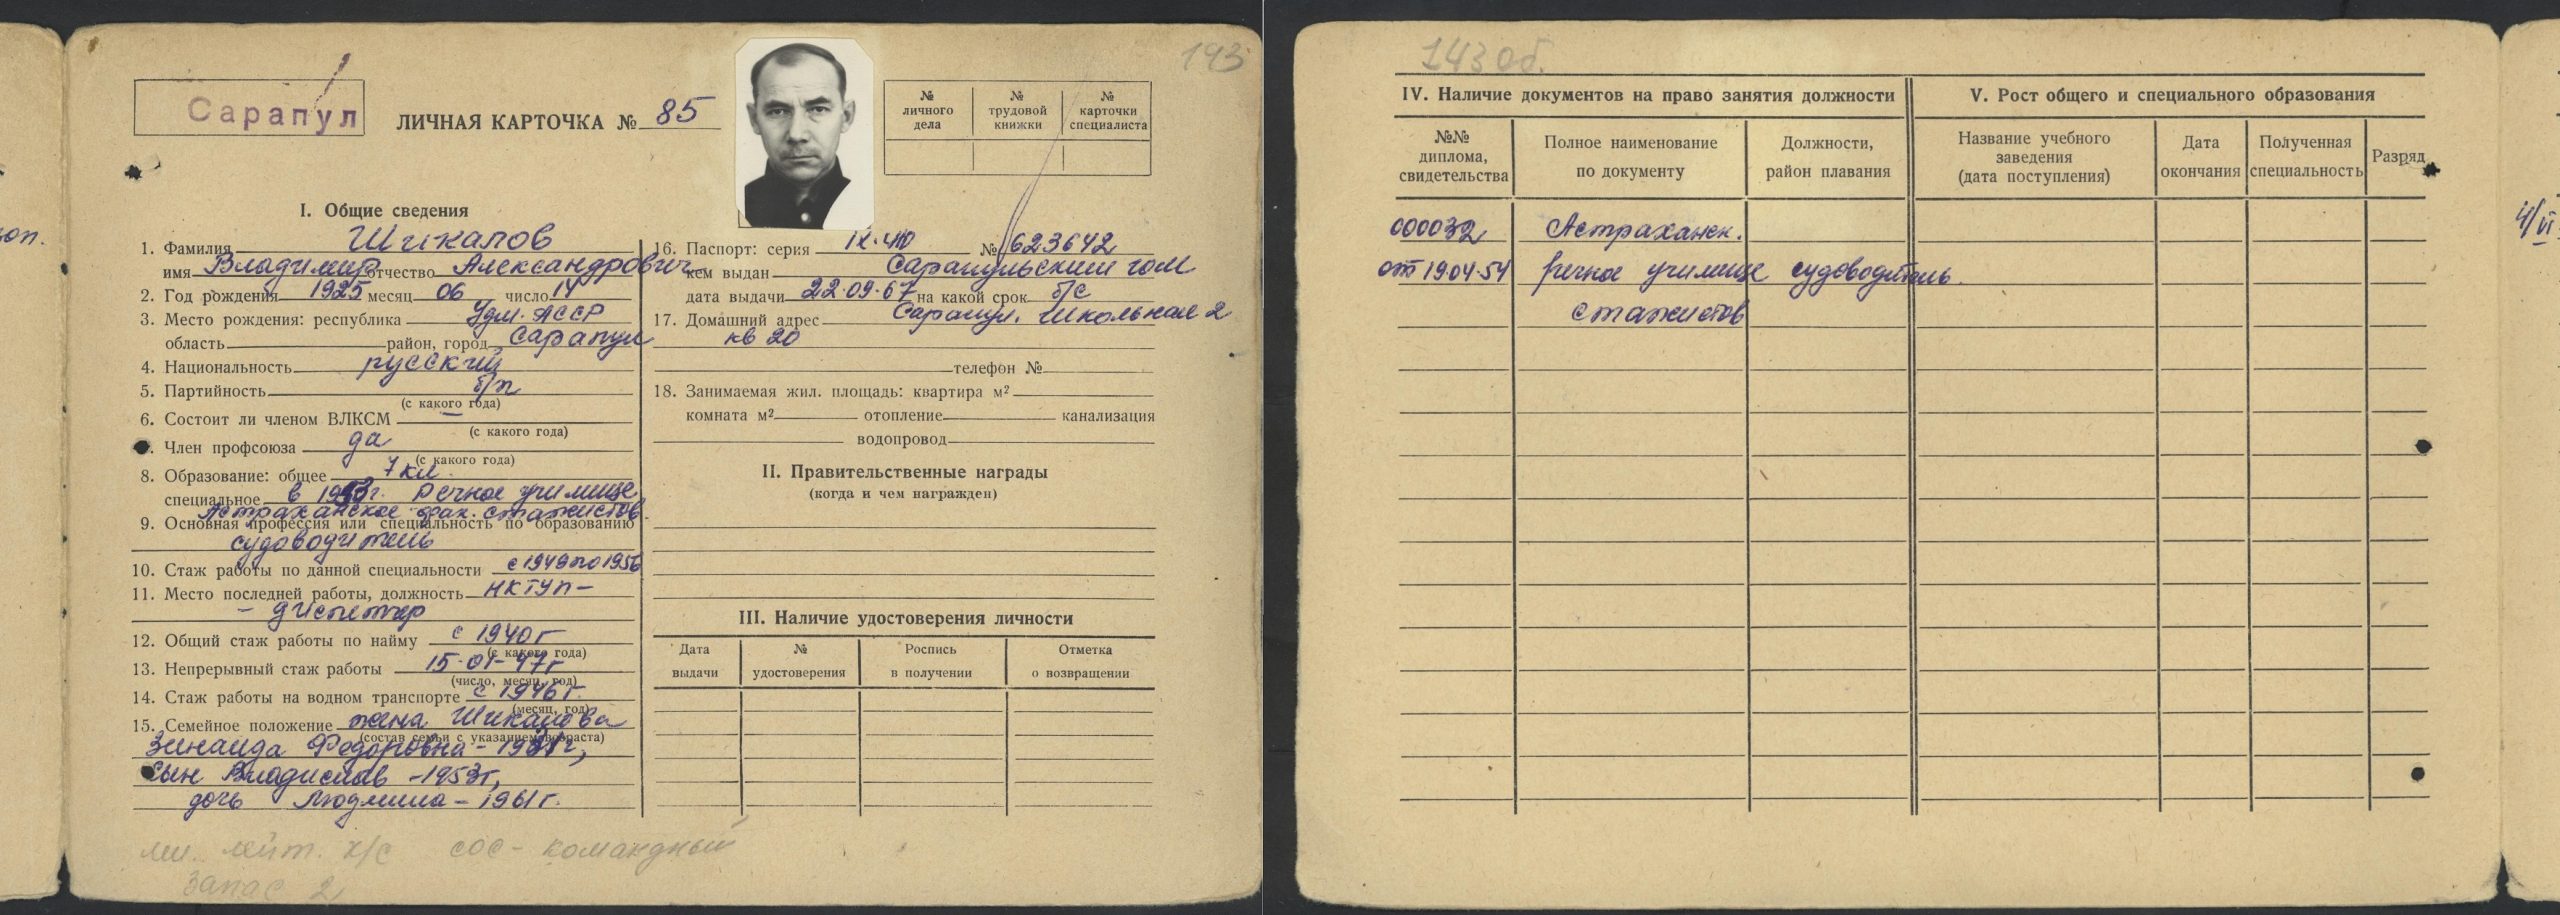 143
Сарапул
ЛИЧНАЯ КАРТОЧКА № 85
№ личного дела
№ трудовой книжки
№ карточки специалиста
I. Общие сведения
1. Фамилия Шикалов
имя Владимир отчество Александрович
2. Год рождения 1925 месяц 06 число 14
3. Место рождения: республика Удм. АССР
область район, город Сарапул
4. Национальность русский
5. Партийность б/п
(с какого года)
6. Состоит ли членом ВЛКСМ —
(с какого года)
Член профсоюза да
(с какого года)
8. Образование: общее 7 кл.
специальное в 1953г. Речное училище
Астраханское фак. стажистов
9. Основная профессия или специальность по образованию
судоводитель
10. Стаж работы по данной специальности с 1949 по 1956
11. Место последней работы, должность НКТУП –
– диспетчер
12. Общий стаж работы по найму с 1940 г
(с какого года)
13. Непрерывный стаж работы 15-01-47г
(число, месяц, год)
14. Стаж работы на водном транспорте с 1946 г.
(месяц, год)
15. Семейное положение жена Шикалова
(состав семьи с указанием возраста)
Зинаида Федоровна –
сын Владислав – 1953г,
дочь Людмила – 1961 г.
мл. лейт. х/с сос – командный
запас 2
16. Паспорт: серия № 623642
кем выдан Сарапульским гом
дата выдачи 22.09.67 на какой срок б/с
17. Домашний адрес Сарапул. Школьная 2
кв 20
телефон №
18. Занимаемая жил. площадь: квартира м²
комната м² отопление канализация
водопровод
II. Правительственные награды
(когда и чем награжден)
III. Наличие удостоверения личности
Дата выдачи
№ удостоверения
Роспись в получении
Отметка о возвращении
143 об.
IV. Наличие документов на право занятия должности
№№ диплома, свидетельства
Полное наименование по документу
Должности, район плавания
000032 Астраханск.
от 19.04.54 речное училище судоводитель
стажистов
V. Рост общего и специального образования
Название учебного заведения (дата поступления)
Дата окончания
Полученная специальность
Разряд